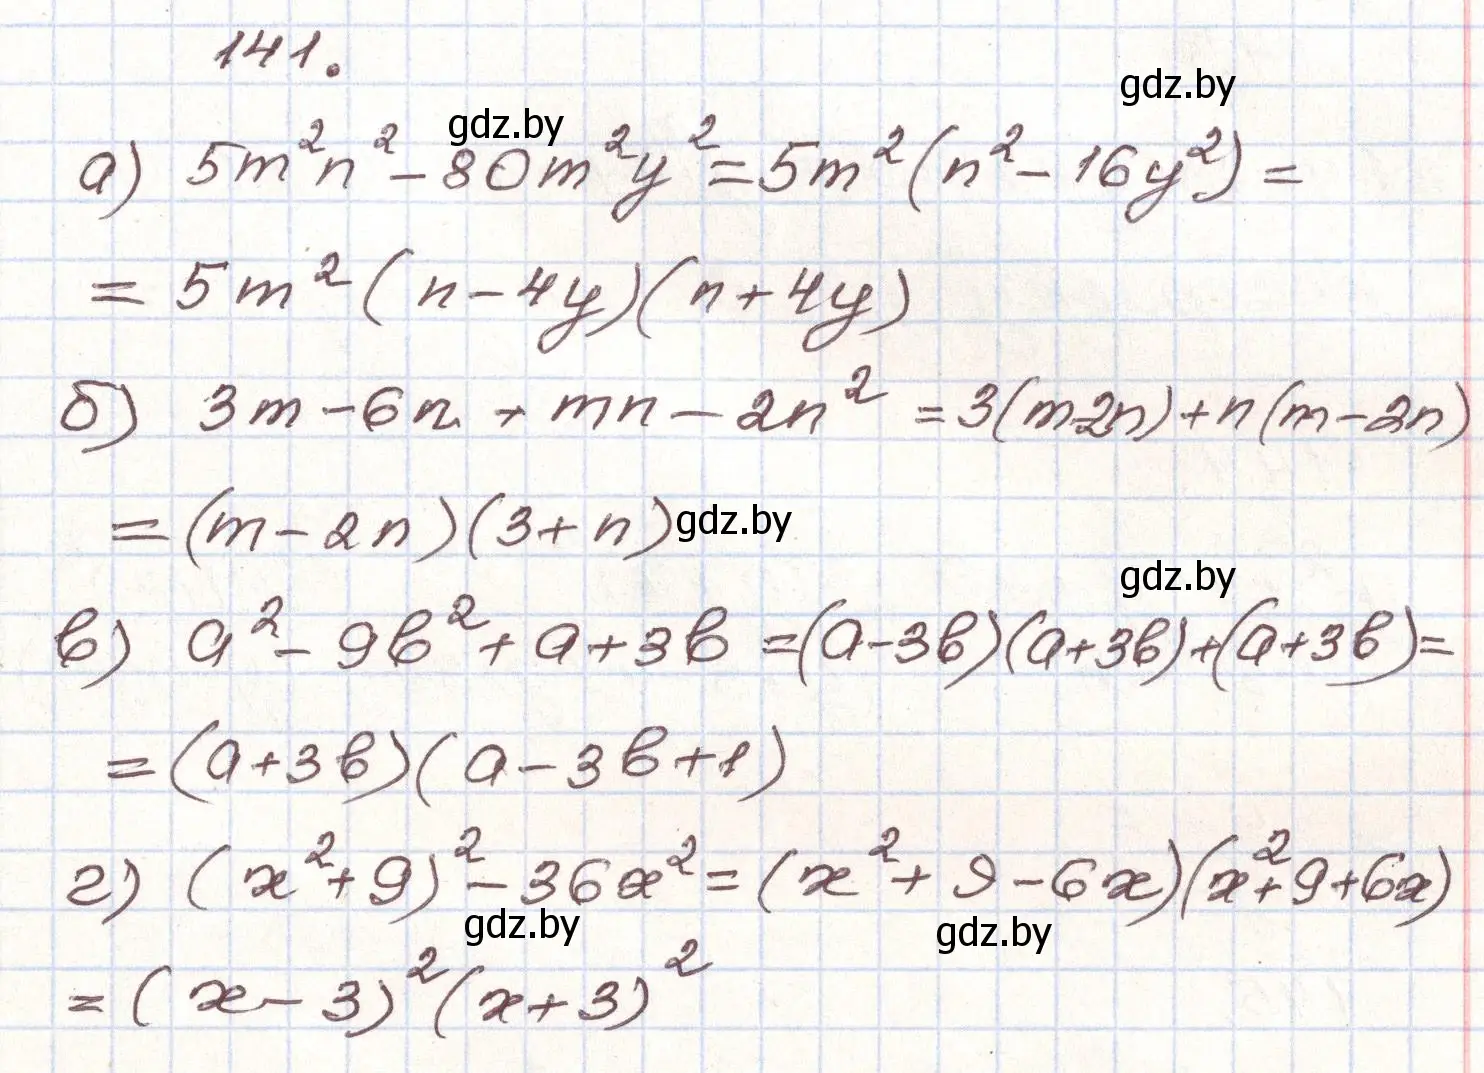 141.
gdz.by
gdz.by
а) 5m²n² - 80m²y² = 5m²(n² - 16y²) =
= 5m²(n - 4y)(n + 4y)
б) 3m - 6n + mn - 2n² = 3(m-2n) + n(m - 2n)
= (m - 2n)(3 + n) gdz.by
gdz.by
в) a² - 9b² + a + 3b = (a - 3b)(a + 3b) + (a + 3b) =
= (a + 3b)(a - 3b + 1)
г) (x² + 9)² - 36x² = (x² + 9 - 6x)(x² + 9 + 6x)
gdz.by gdz.by
= (x - 3)²(x + 3)²